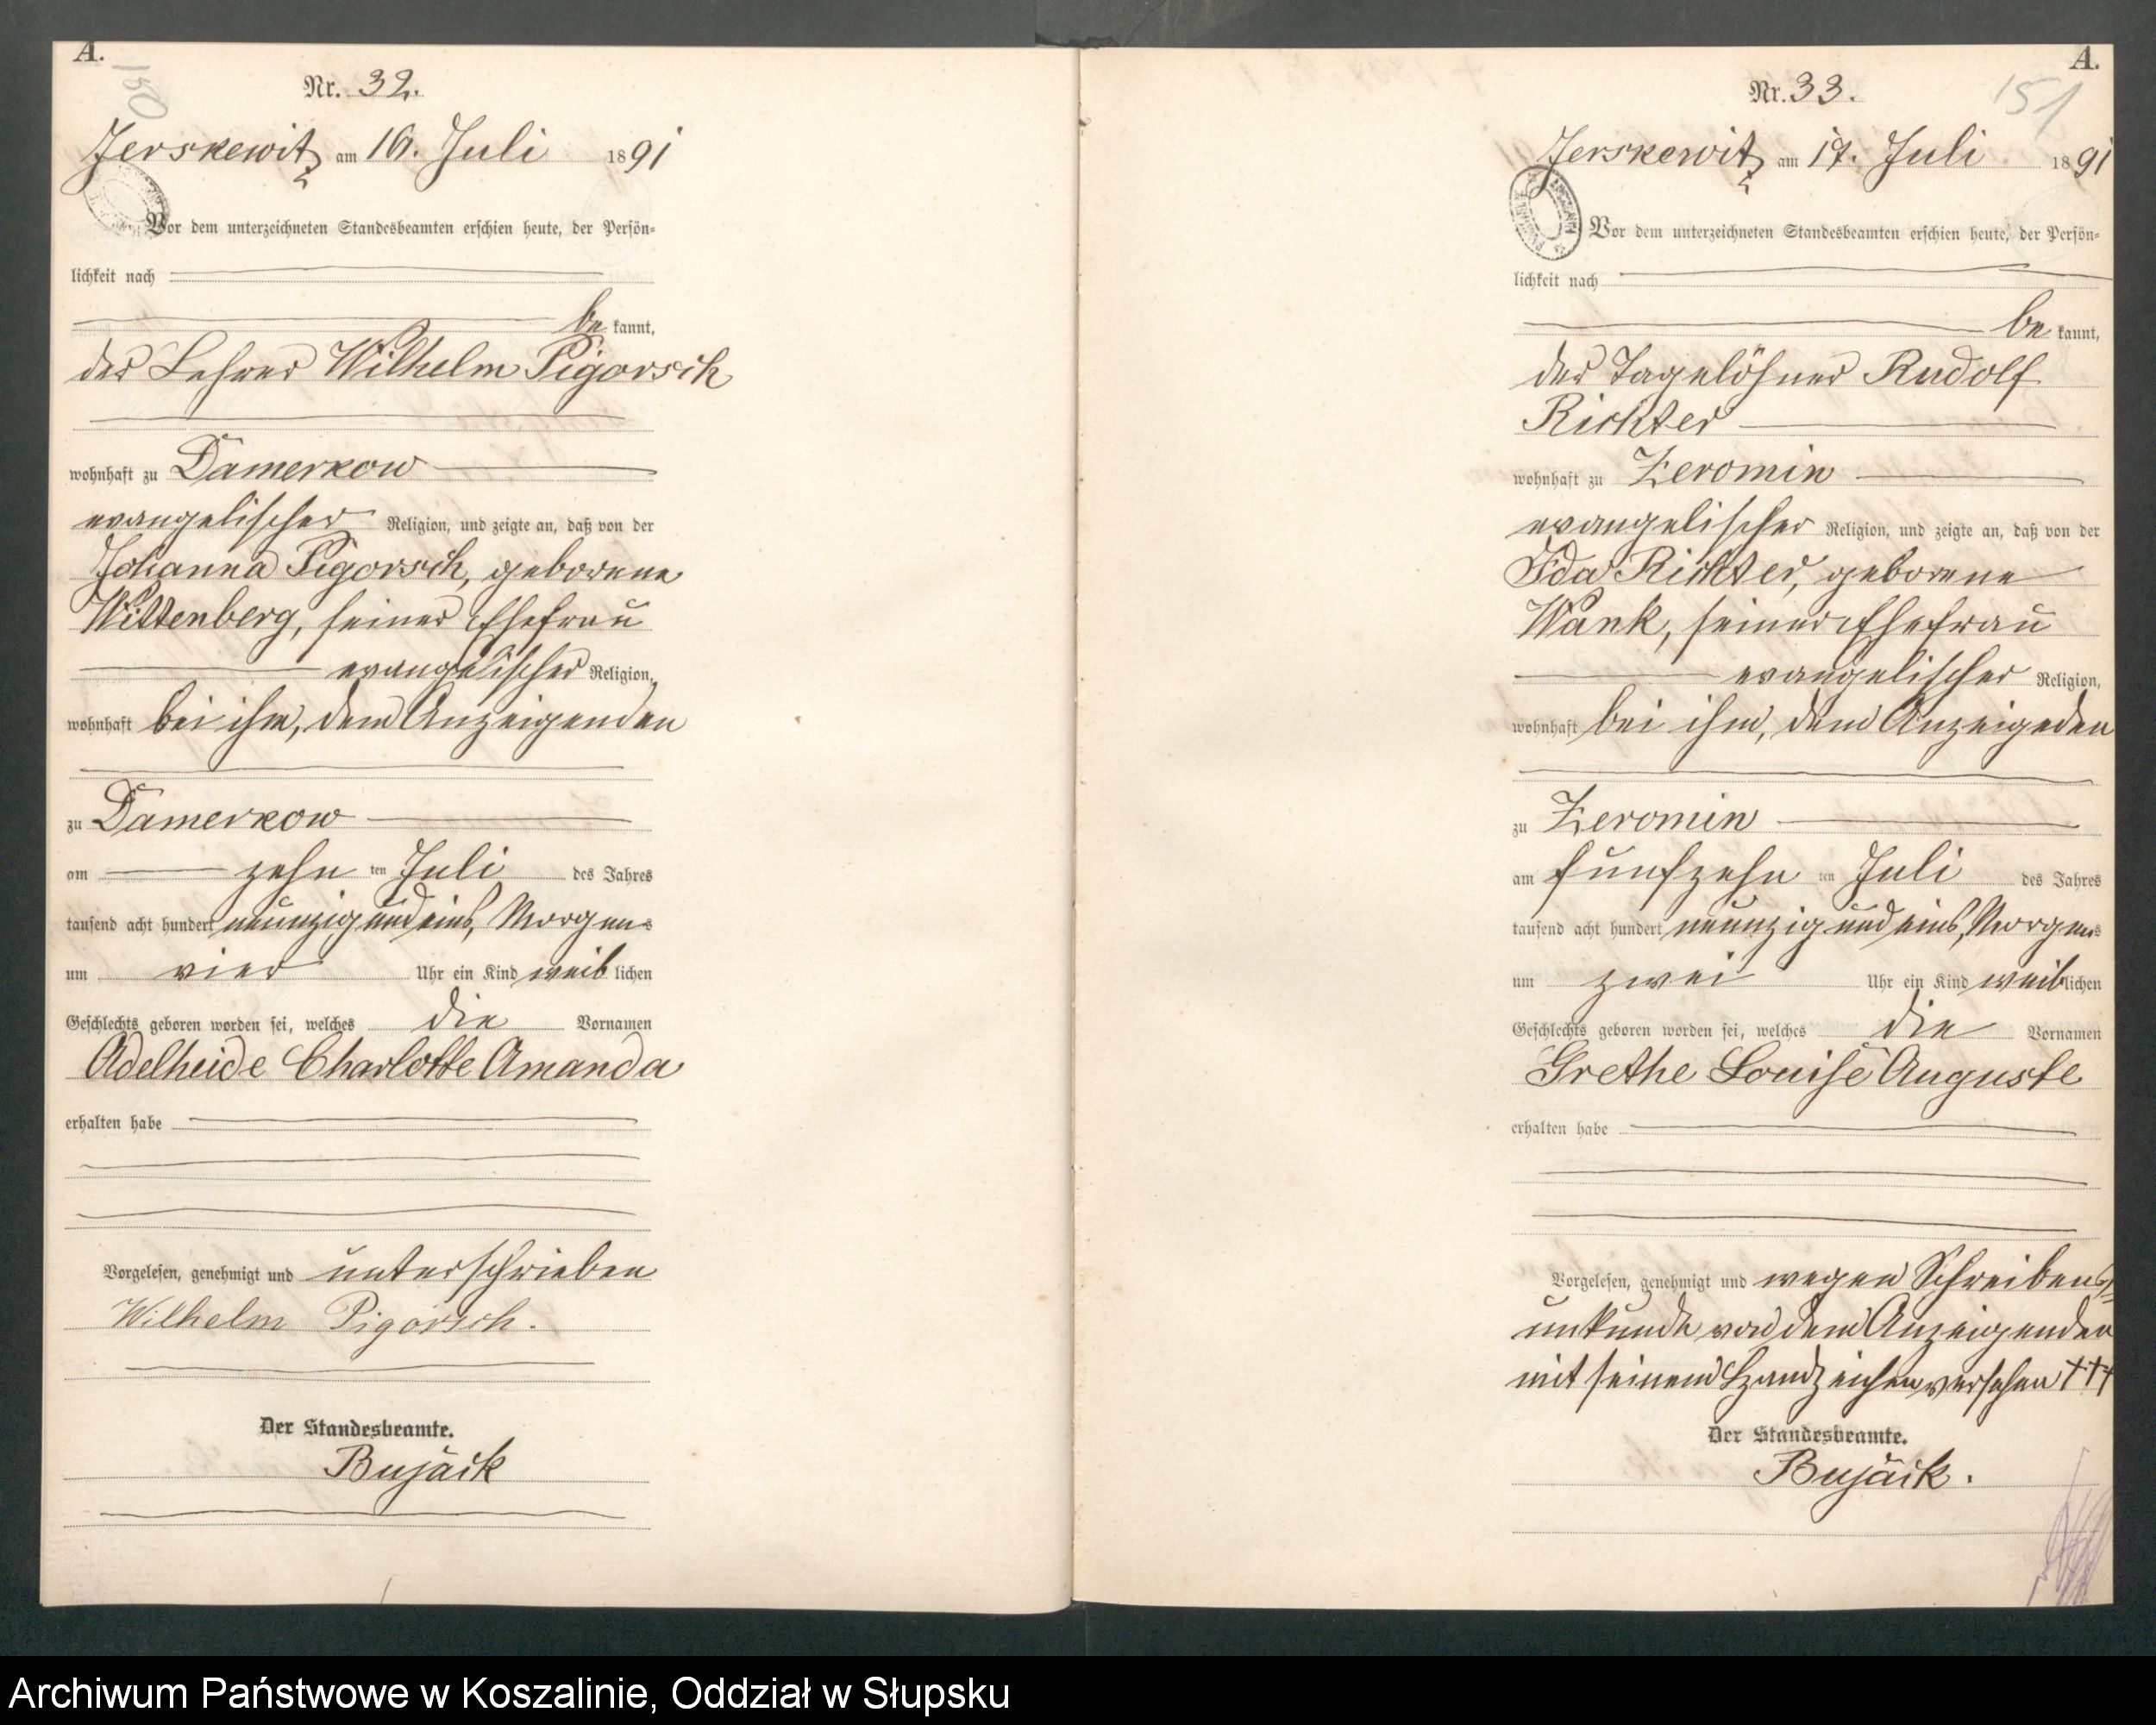 A.
150
Nr. 32.
Jerskewitz am 16. Juli 1891
Vor dem unterzeichneten Standesbeamten erschien heute, der Persön-
lichkeit nach
be kannt,
der Lehrer Wilhelm Pigorsch
wohnhaft zu Damerkow
evangelischer Religion, und zeigte an, daß von der
Johanna Pigorsch, geborene
Wittenberg, seiner Ehefrau
evangelischer Religion,
wohnhaft bei ihm, dem Anzeigenden
zu Damerkow
am zehn ten Juli des Jahres
tausend acht hundert neunzig und eins, Morgens
um vier Uhr ein Kind weib lichen
Geschlechts geboren worden sei, welches die Vornamen
Adelheide Charlotte Amanda
erhalten habe
Vorgelesen, genehmigt und unterschrieben
Wilhelm Pigorsch.
Der Standesbeamte.
Bujack
A.
151
Nr. 33.
Jerskewitz am 17. Juli 1891
Vor dem unterzeichneten Standesbeamten erschien heute, der Persön-
lichkeit nach
be kannt,
der Tagelöhner Rudolf
Richter
wohnhaft zu Zeromin
evangelischer Religion, und zeigte an, daß von der
Ida Richter, geborene
Wank, seiner Ehefrau
evangelischer Religion,
wohnhaft bei ihm, dem Anzeigeden
zu Zeromin
am fünfzehn ten Juli des Jahres
tausend acht hundert neunzig und eins, Morgens
um zwei Uhr ein Kind weiblichen
Geschlechts geboren worden sei, welches die Vornamen
Grethe Louise Auguste
erhalten habe
Vorgelesen, genehmigt und wegen Schreibens-
unkunde von dem Anzeigenden
mit seinem Handzeichen versehen +++
Der Standesbeamte.
Bujack.
Archiwum Państwowe w Koszalinie, Oddział w Słupsku